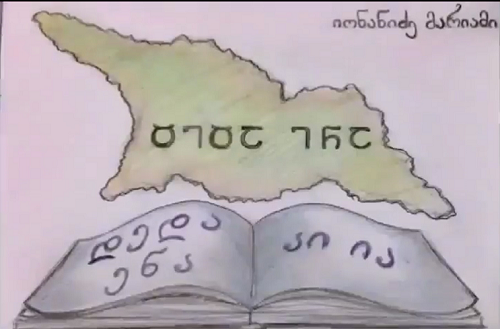 იონანიძე მარიამი
ႣႤႣႠ ႤႬႠ
დედა
ენა
აი ია